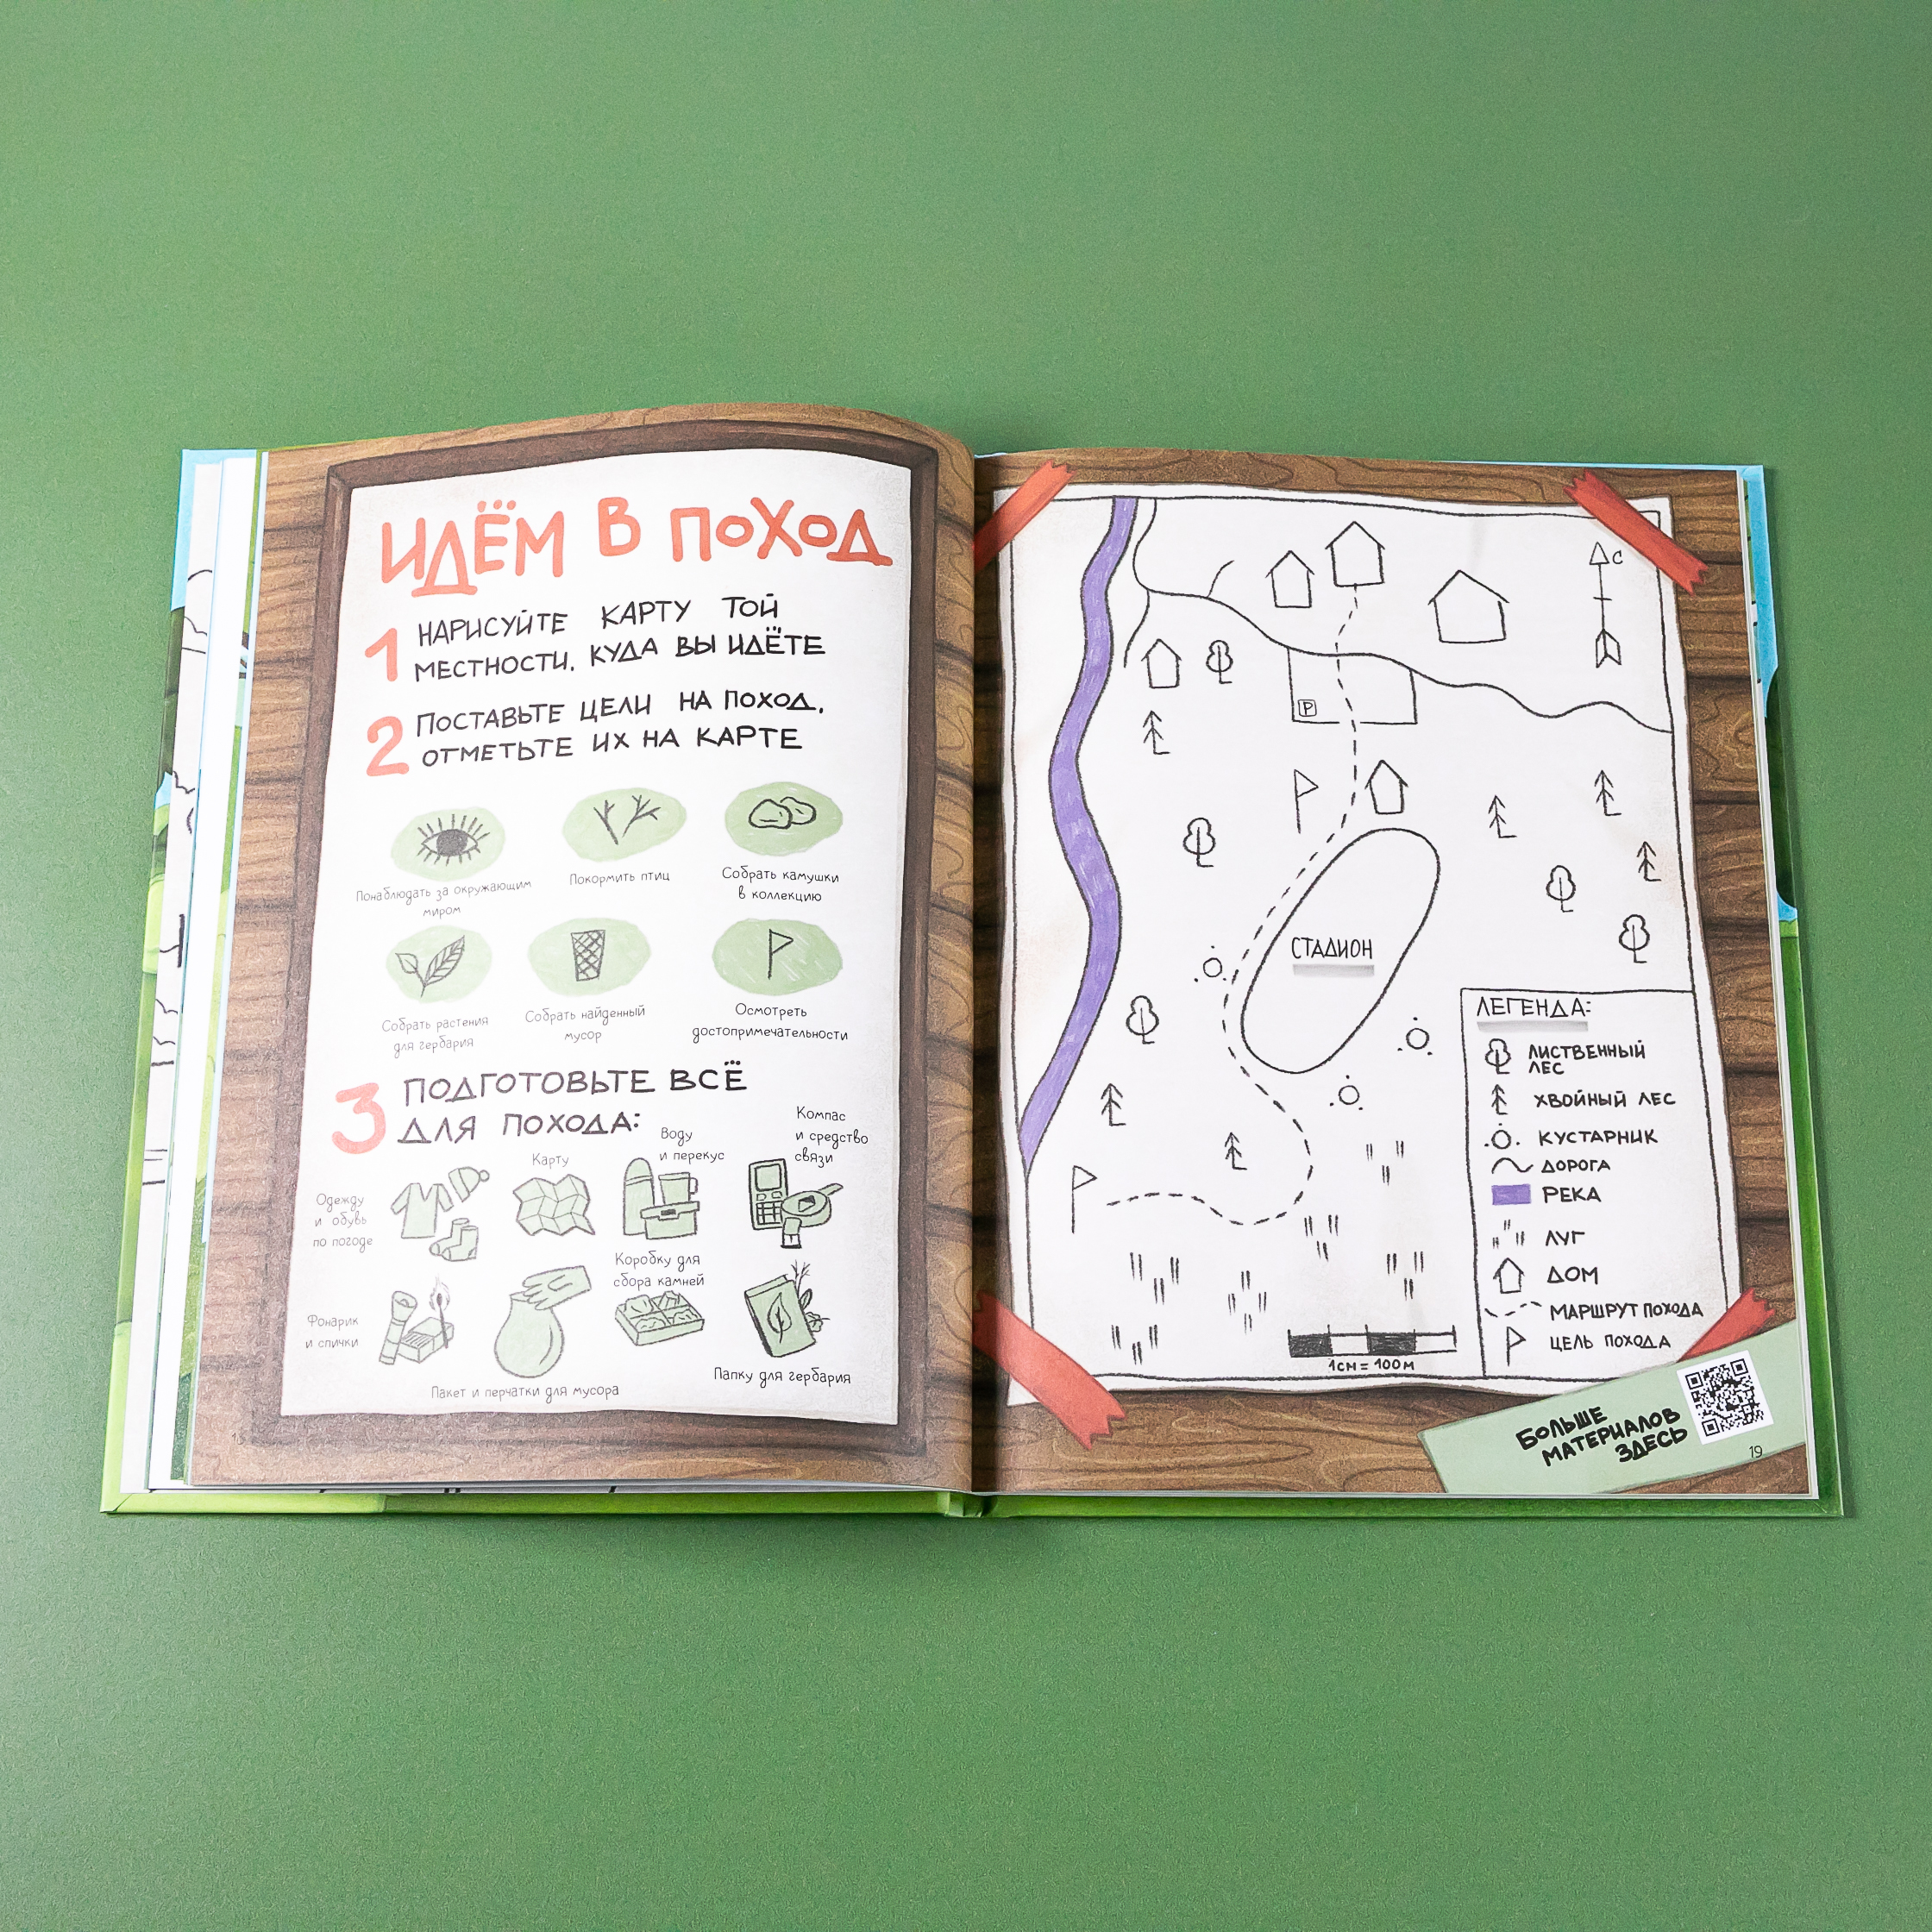 ИДЁМ В ПОХОД
1 НАРИСУЙТЕ КАРТУ ТОЙ
МЕСТНОСТИ, КУДА ВЫ ИДЁТЕ
2 ПОСТАВЬТЕ ЦЕЛИ НА ПОХОД,
ОТМЕТЬТЕ ИХ НА КАРТЕ
Понаблюдать за окружающим
миром
Покормить птиц
Собрать камушки
в коллекцию
Собрать растения
для гербария
Собрать найденный
мусор
Осмотреть
достопримечательности
3 ПОДГОТОВЬТЕ ВСЁ
ДЛЯ ПОХОДА:
Одежду
и обувь
по погоде
Карту
Воду
и перекус
Компас
и средство
связи
Фонарик
и спички
Пакет и перчатки для мусора
Коробку для
сбора камней
Папку для гербария
С
P
СТАДИОН
ЛЕГЕНДА:
ЛИСТВЕННЫЙ
ЛЕС
ХВОЙНЫЙ ЛЕС
КУСТАРНИК
ДОРОГА
РЕКА
ЛУГ
ДОМ
МАРШРУТ ПОХОДА
ЦЕЛЬ ПОХОДА
1СМ = 100М
БОЛЬШЕ
МАТЕРИАЛОВ
ЗДЕСЬ
19